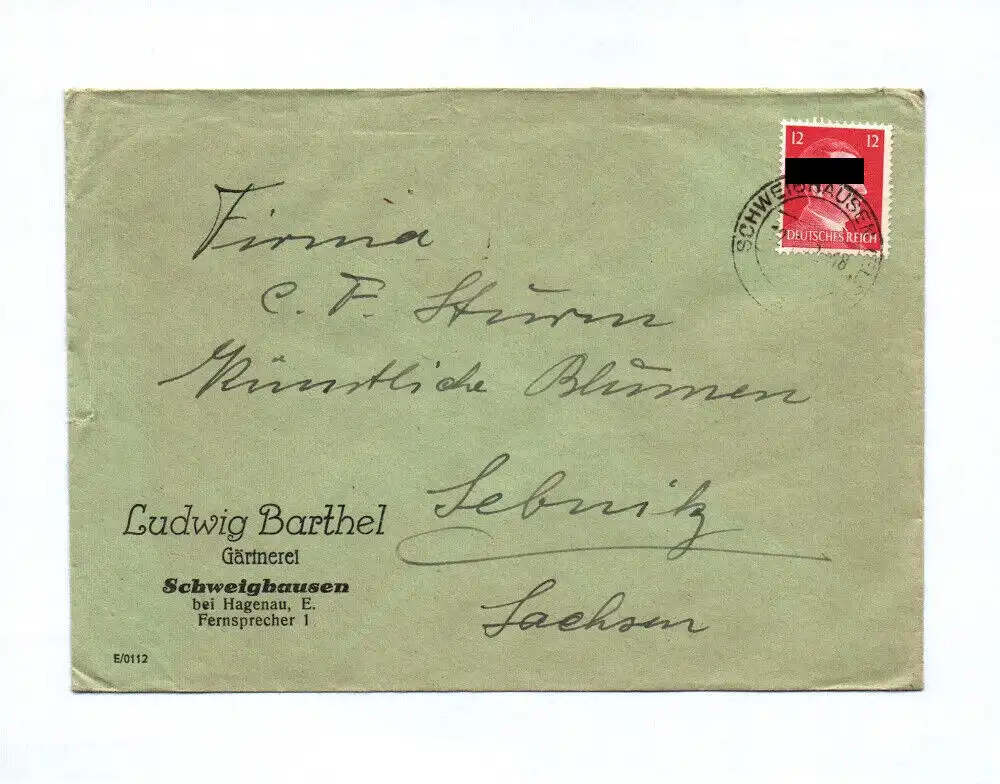 12 12
DEUTSCHES REICH
SCHWEIGHAUSEN
Firma
C. F. Sturm
Künstliche Blumen
Sebnitz
Sachsen
Ludwig Barthel
Gärtnerei
Schweighausen
bei Hagenau, E.
Fernsprecher 1
E/0112